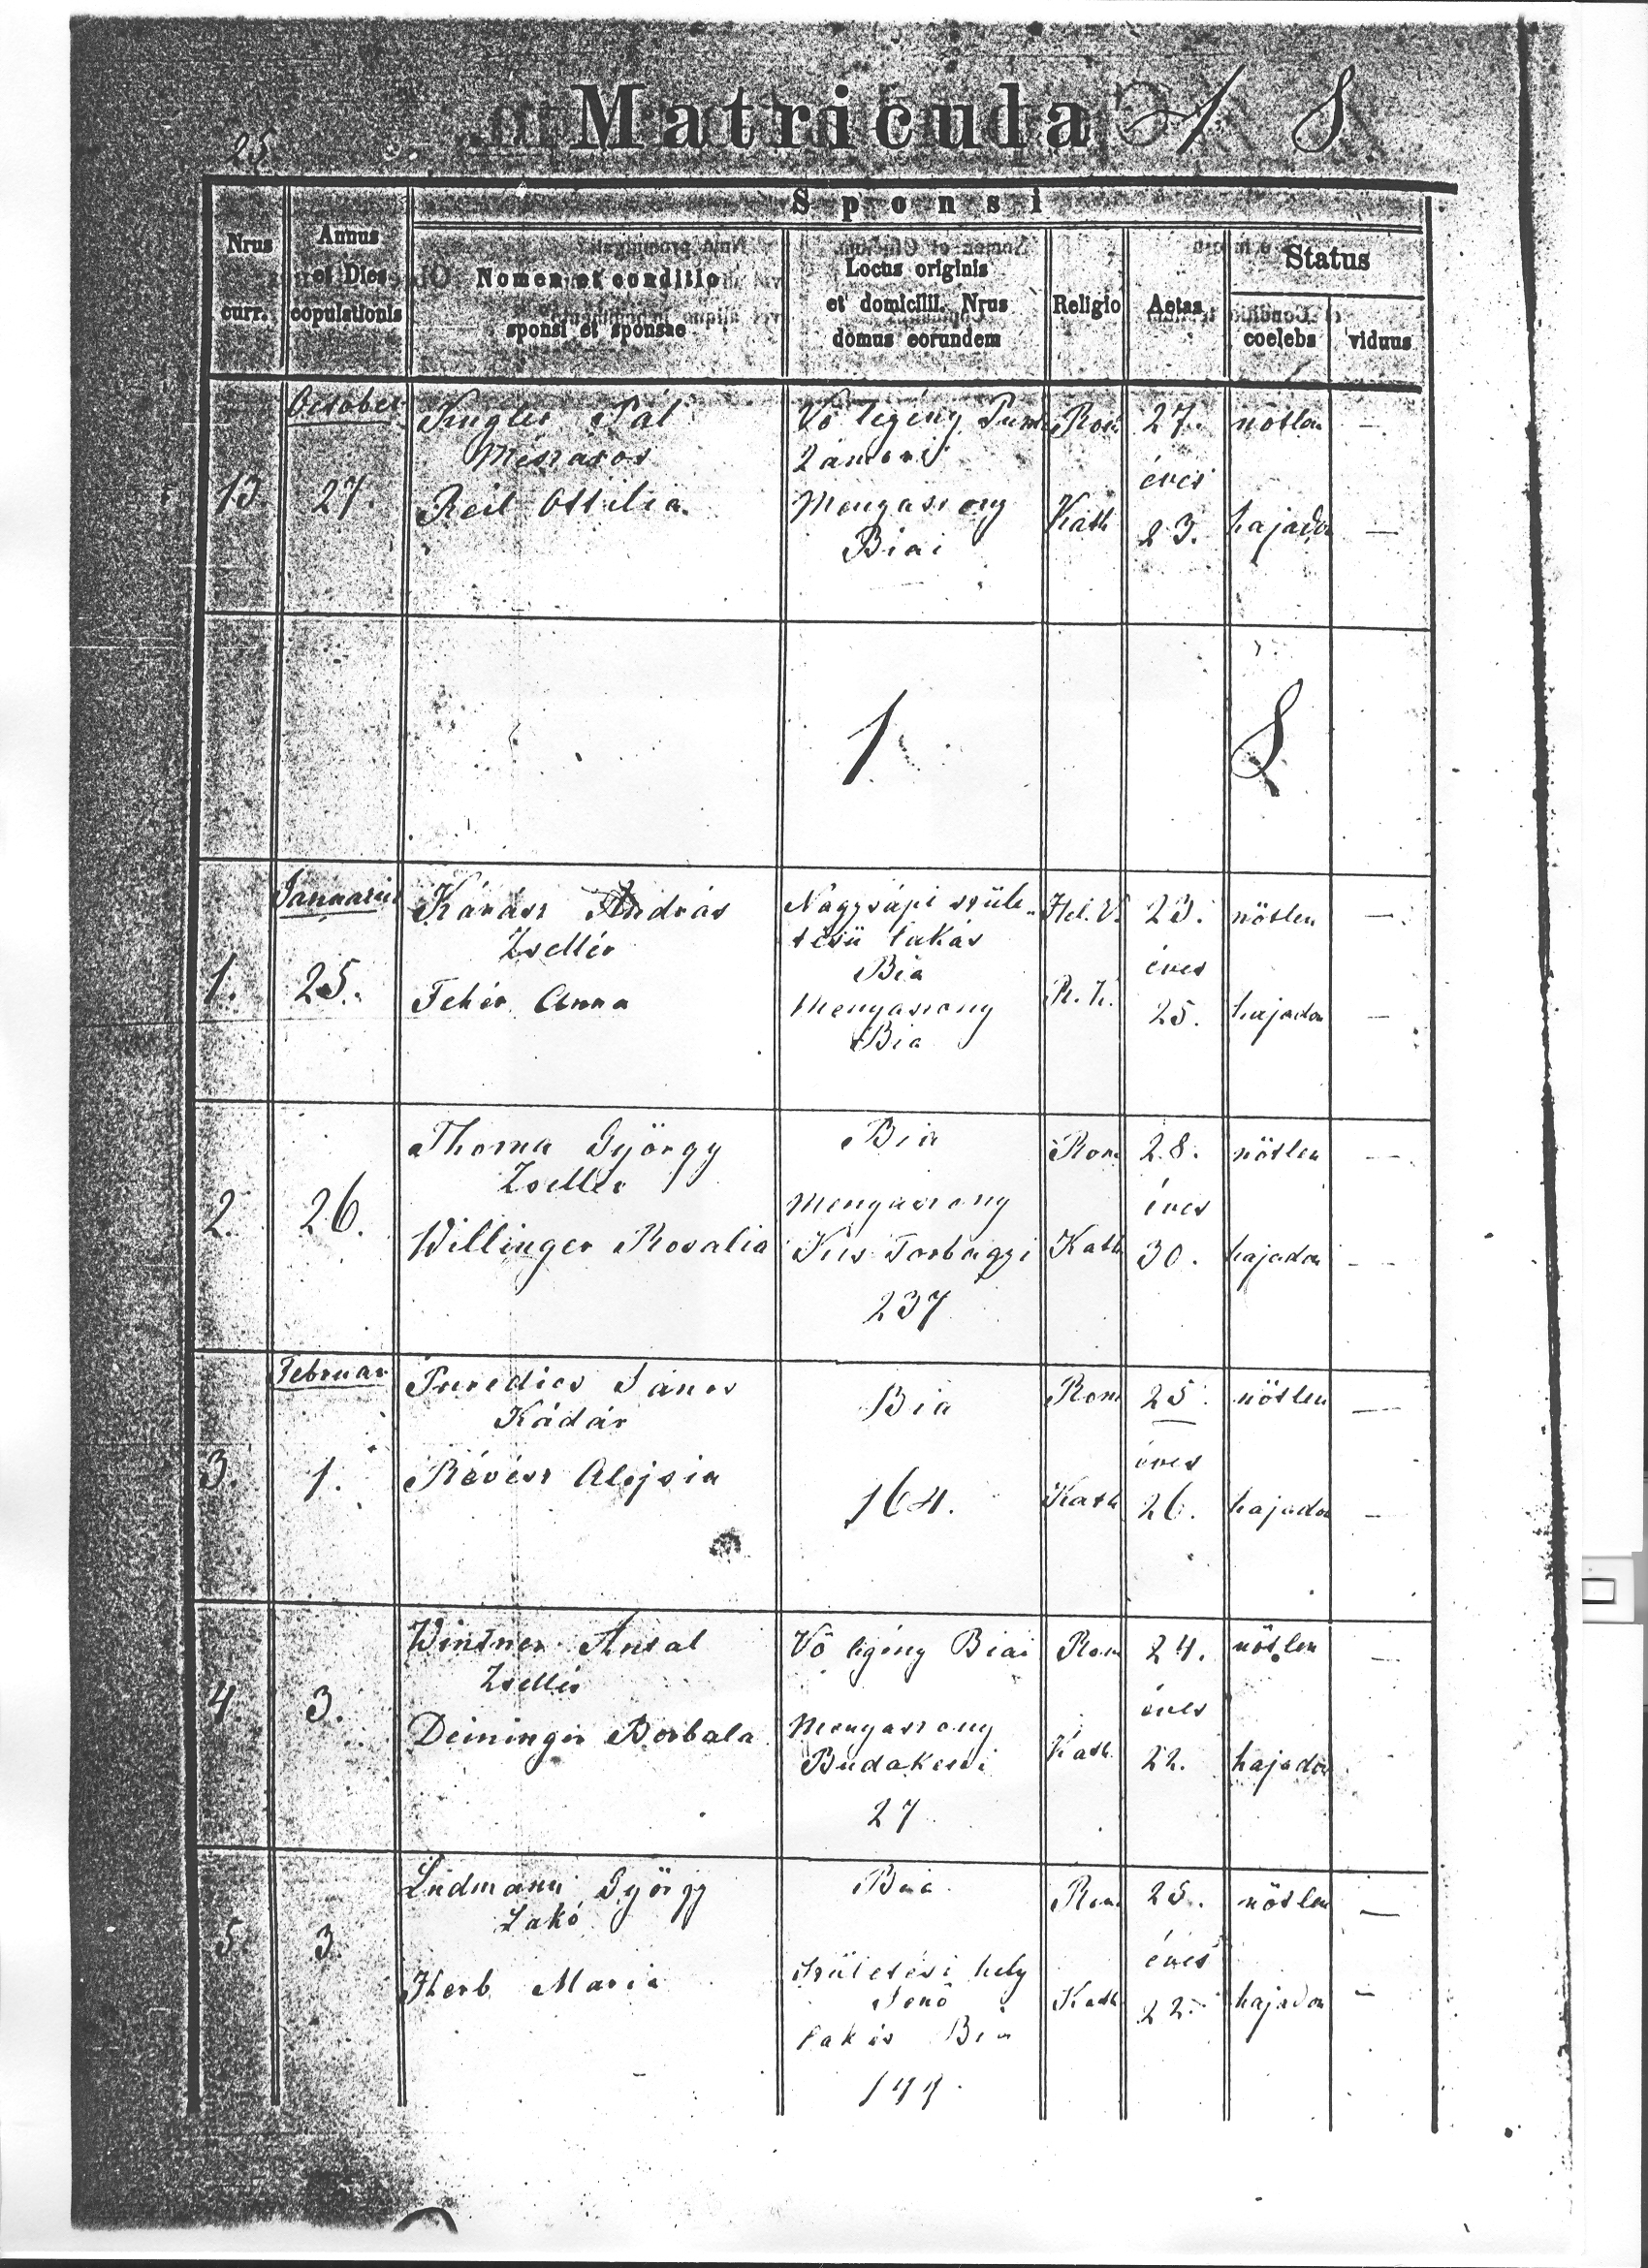 Matricula 1 8
25
Sponsi
Nrus curr.
Annus et Dies copulationis
Nomen et conditio sponsi et sponsae
Locus originis et domicilii. Nrus domus eorundem
Religio
Aetas
Status
coelebs
viduus
October
13. 27.
Pál
Mészáros
Reil Ottilia
Vő legény
Menyasszony
Biai
Rom Kath
27. éves 23.
nőtlen —
hajadon —
1 8
Januarius
1. 25.
Kárász András
Zsellér
Fehér Anna
Nagysápi szüle-
tésü lakás
Bia
Menyasszony
Bia
Hel. V.
R. k.
23. éves 25.
nőtlen —
hajadon —
2. 26.
Thoma György
Zsellér
Willinger Rosalia
Bia
Menyasszony
Kis Torbágyi
237
Rom Kath
28. éves 30.
nőtlen —
hajadon —
Februar
3. 1.
János
Kádár
Révész Alojsia
Bia
164.
Rom Kath
25. éves 26.
nőtlen —
hajadon —
4. 3.
Wintner Antal
Zsellér
Deininger Borbala
Vő legény Biai
Menyasszony
Budakeszi
27
Rom Kath.
24. éves 22.
nőtlen —
hajadon
5. 3.
Ludmann György
Lakó
Herb Maria
Bia
Születési hely
Jenő
lakás Bia
Rom Kath
25. éves 22.
nőtlen —
hajadon —